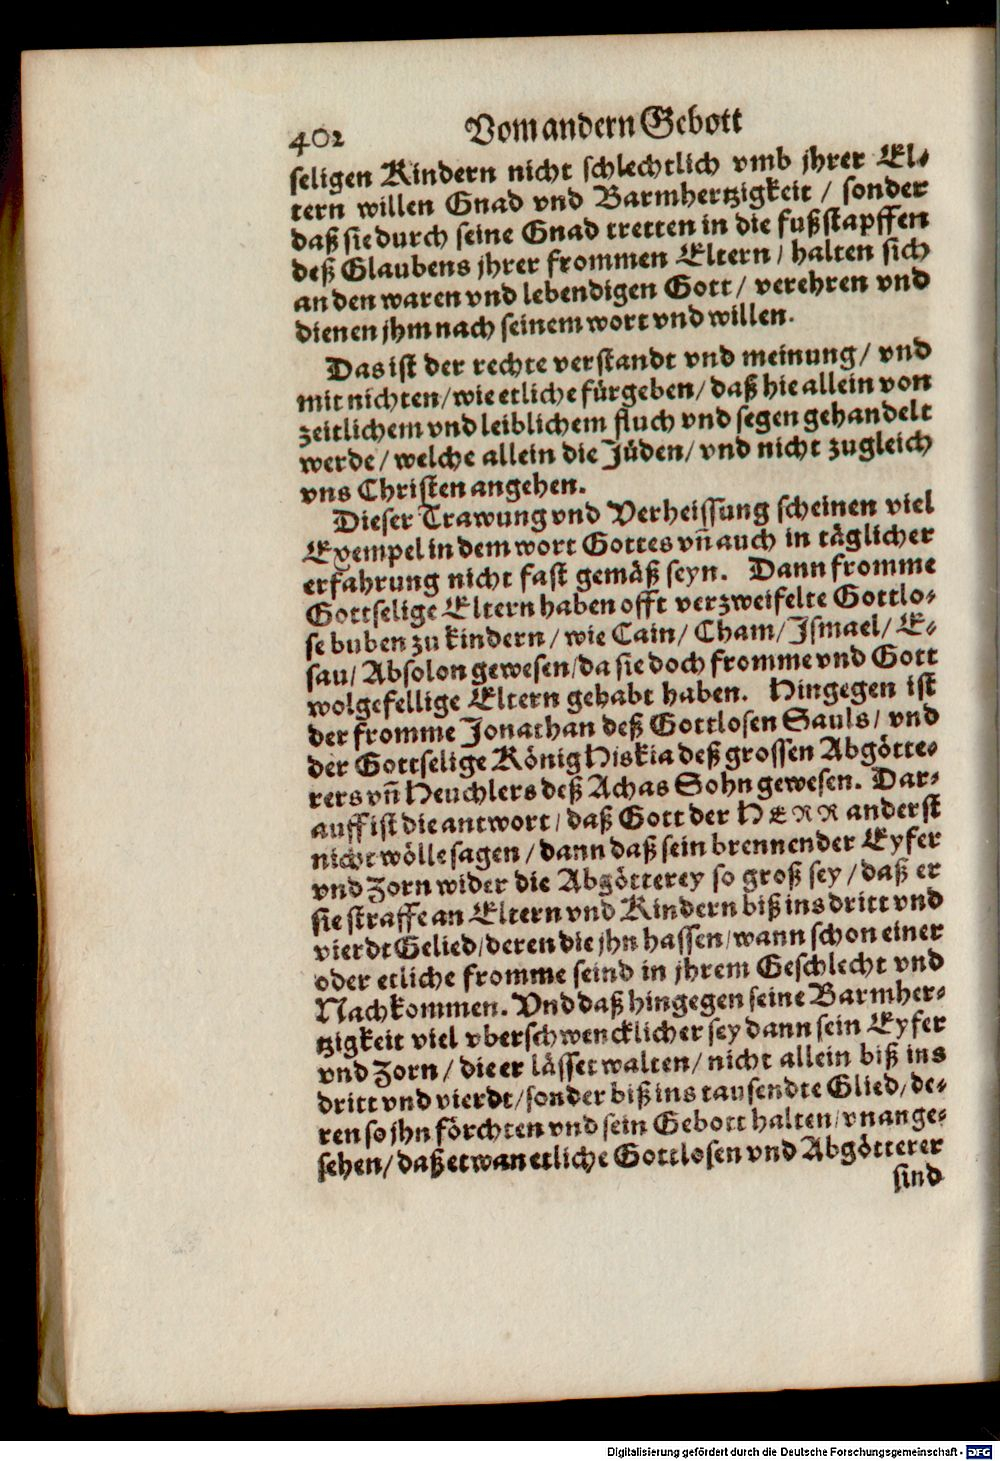 402 Vom andern Gebott
seligen Kindern nicht schlechtlich vmb jhrer El-
tern willen Gnad vnd Barmhertzigkeit / sonder
daß sie durch seine Gnad tretten in die fußstapffen
deß Glaubens jhrer frommen Eltern / halten sich
an den waren vnd lebendigen Gott / verehren vnd
dienen jhm nach seinem wort vnd willen.
Das ist der rechte verstandt vnd meinung / vnd
mit nichten / wie etliche fürgeben / daß hie allein von
zeitlichem vnd leiblichem fluch vnd segen gehandelt
werde / welche allein die Jüden / vnd nicht zugleich
vns Christen angehen.
Dieser Trawung vnd Verheissung scheinen viel
Exempel in dem wort Gottes vñ auch in täglicher
erfahrung nicht fast gemäß seyn. Dann fromme
Gottselige Eltern haben offt verzweifelte Gottlo-
se buben zu kindern / wie Cain / Cham / Ismael / E-
sau / Absolon gewesen / da sie doch fromme vnd Gott
wolgefellige Eltern gehabt haben. Hingegen ist
der fromme Jonathan deß Gottlosen Sauls / vnd
der Gottselige König Hiskia deß grossen Abgötte-
rers vñ Heuchlers deß Achas Sohn gewesen. Dar-
auff ist die antwort / daß Gott der HERR anderst
nicht wölle sagen / dann daß sein brennender Eyfer
vnd Zorn wider die Abgötterey so groß sey / daß er
sie straffe an Eltern vnd Kindern biß ins dritt vnd
vierdt Gelied / deren die jhn hassen / wann schon einer
oder etliche fromme seind in jhrem Geschlecht vnd
Nachkommen. Vnd daß hingegen seine Barmher-
tzigkeit viel vberschwencklicher sey dann sein Eyfer
vnd Zorn / die er lässet walten / nicht allein biß ins
dritt vnd vierdt / sonder biß ins tausendte Glied / de-
ren so jhn förchten vnd sein Gebott halten / vnange-
sehen / daß etwan etliche Gottlosen vnd Abgötterer
sind
Digitalisierung gefördert durch die Deutsche Forschungsgemeinschaft - DFG